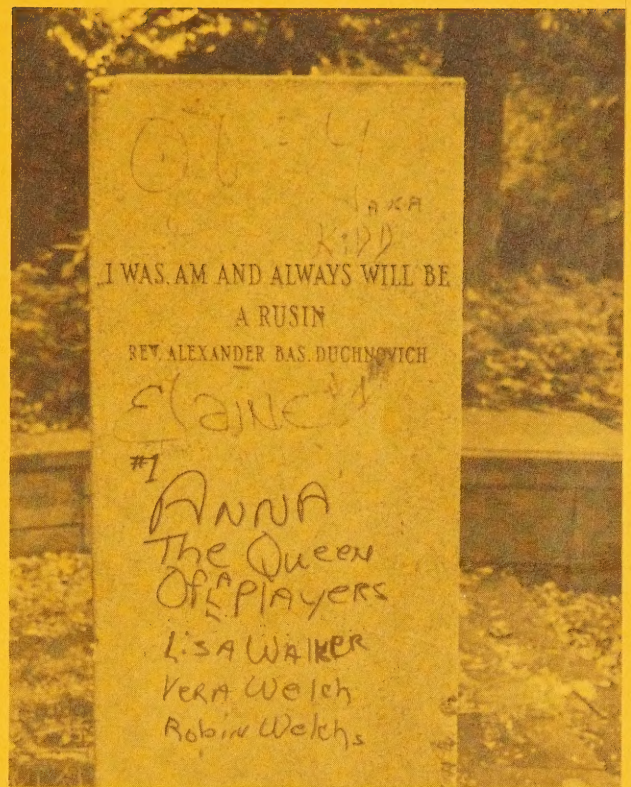 AKA
KIDD
I WAS, AM AND ALWAYS WILL BE
A RUSIN
REV. ALEXANDER BAS. DUCHNOVICH
Elaine #1
#1
ANNA
The Queen
Of PlAyers
LiSA WAlKER
VERA Welch
Robin Welchs